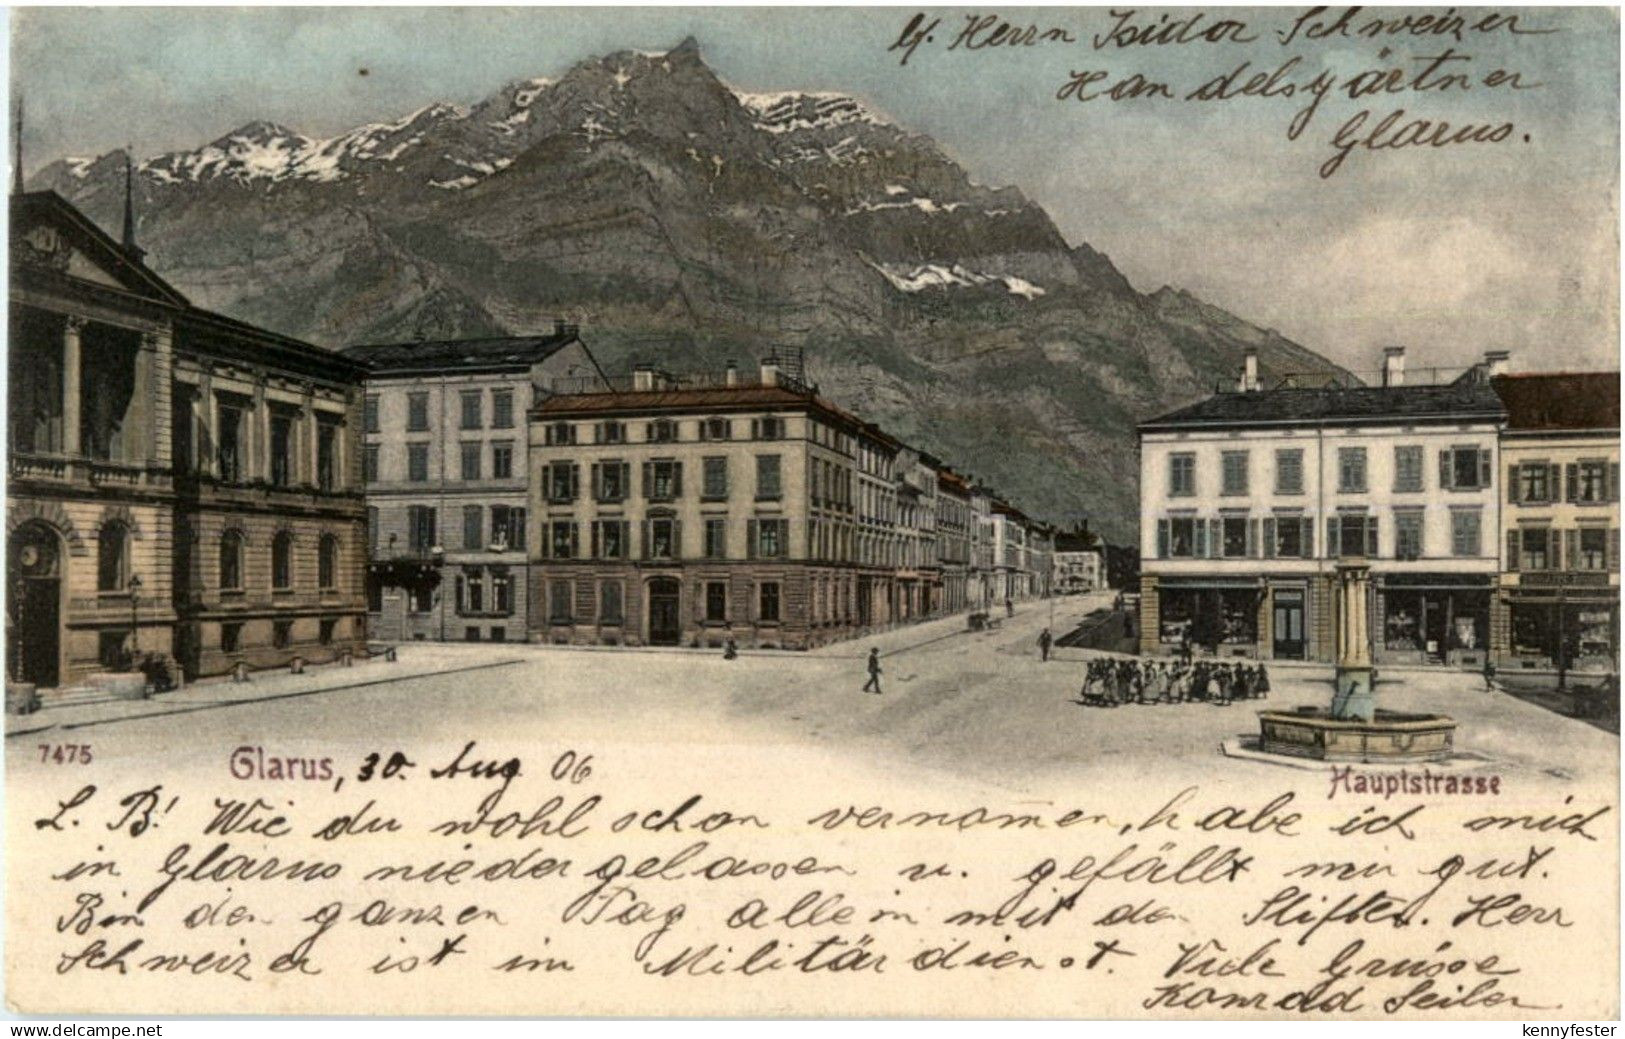 bf. Herrn Isidor Schweizer
Handelsgärtner
Glarus.
7475
Glarus, 30. Aug 06
Hauptstrasse
L. B.! Wie du wohl schon vernommen, habe ich mich
in Glarus niedergelassen u. gefällt mir gut.
Bin den ganzen Tag allein mit den Stiften. Herr
Schweizer ist im Militärdienst. Viele Grüsse
Konrad Seiler.
www.delcampe.net
kennyfester